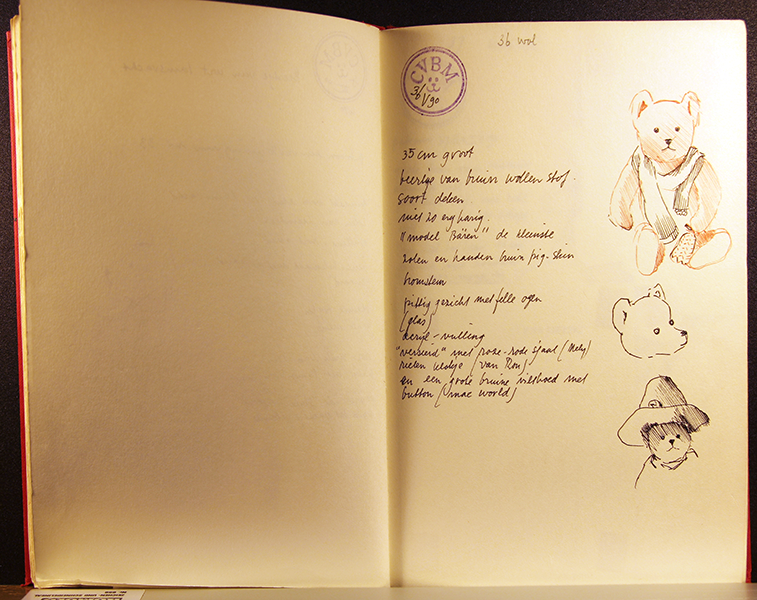 36 wol
CVBM
36
1/90
35 cm groot
beertje van bruin wollen stof.
soort deken
niet zo erg harig.
"model Bären" de kleinste
zolen en handen bruin pig-skin
bromstem
pittig gezicht met felle ogen
(glas)
acryl-vulling
"versierd" met roze-rode sjaal
rieten klokje (van Ron)
en een grote bruine vilthoed met
button (mac world)